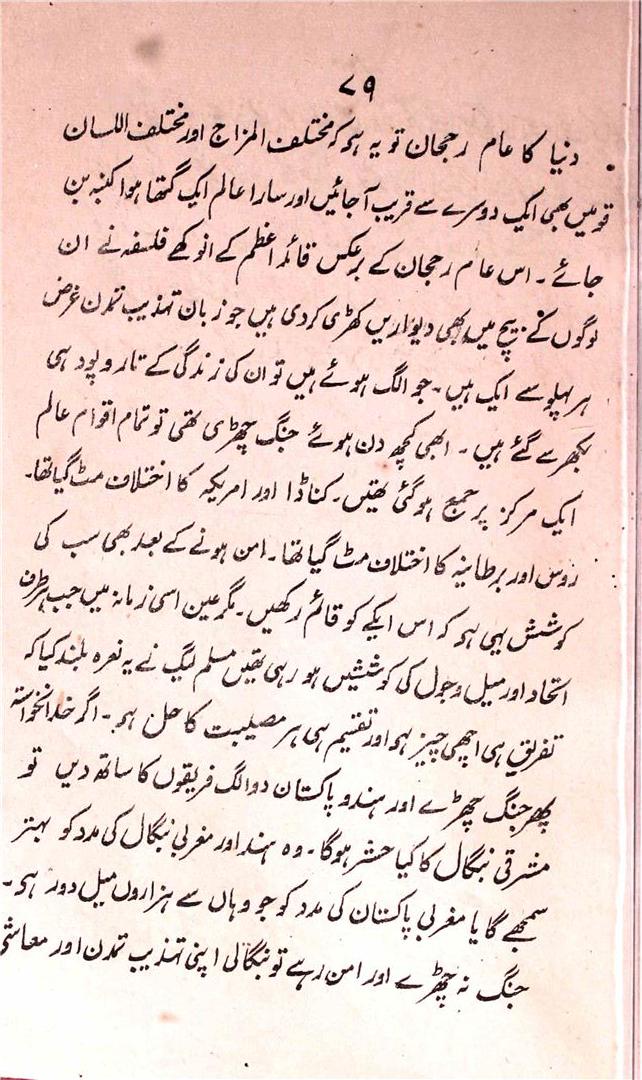 ۷۹
دنیا کا عام رجحان تو یہ ہو کہ مختلف المزاج اور مختلف اللسان
قومیں بھی ایک دوسرے سے قریب آجائیں اور سارا عالم ایک گٹھا ہوا کنبہ بن
جائے ۔ اس عام رجحان کے برعکس قائد اعظم کے انوکھے فلسفہ نے ان
لوگوں کے بیچ میں بھی دیواریں کھڑی کردی ہیں جو زبان تہذیب تمدن غرض
ہر پہلو سے ایک ہیں ۔ جو الگ ہوئے ہیں تو ان کی زندگی کے تار و پود ہی
بکھر سے گئے ہیں ۔ ابھی کچھ دن ہوئے جنگ چھڑی تھی تو تمام اقوام عالم
ایک مرکز پر جمع ہوگئی تھیں ۔ کناڈا اور امریکہ کا اختلاف مٹ گیا تھا ۔
روس اور برطانیہ کا اختلاف مٹ گیا تھا ۔ امن ہونے کے بعد بھی سب کی
کوشش یہی ہو کہ اس ایکے کو قائم رکھیں ۔ مگر عین اسی زمانہ میں جب ہر طرف
اتحاد اور میل و جول کی کوششیں ہو رہی تھیں مسلم لیگ نے یہ نعرہ بلند کیا کہ
تفریق ہی اچھی چیز ہو اور تقسیم ہی ہر مصیبت کا حل ہو ۔ اگر خدانخواستہ
پھر جنگ چھڑے اور ہند و پاکستان دو الگ فریقوں کا ساتھ دیں تو
مشرقی بنگال کا کیا حشر ہوگا ۔ وہ ہند اور مغربی بنگال کی مدد کو بہتر
سمجھے گا یا مغربی پاکستان کی مدد کو جو وہاں سے ہزاروں میل دور ہو ۔
جنگ نہ چھڑے اور امن رہے تو بنگالی اپنی تہذیب تمدن اور معاشی